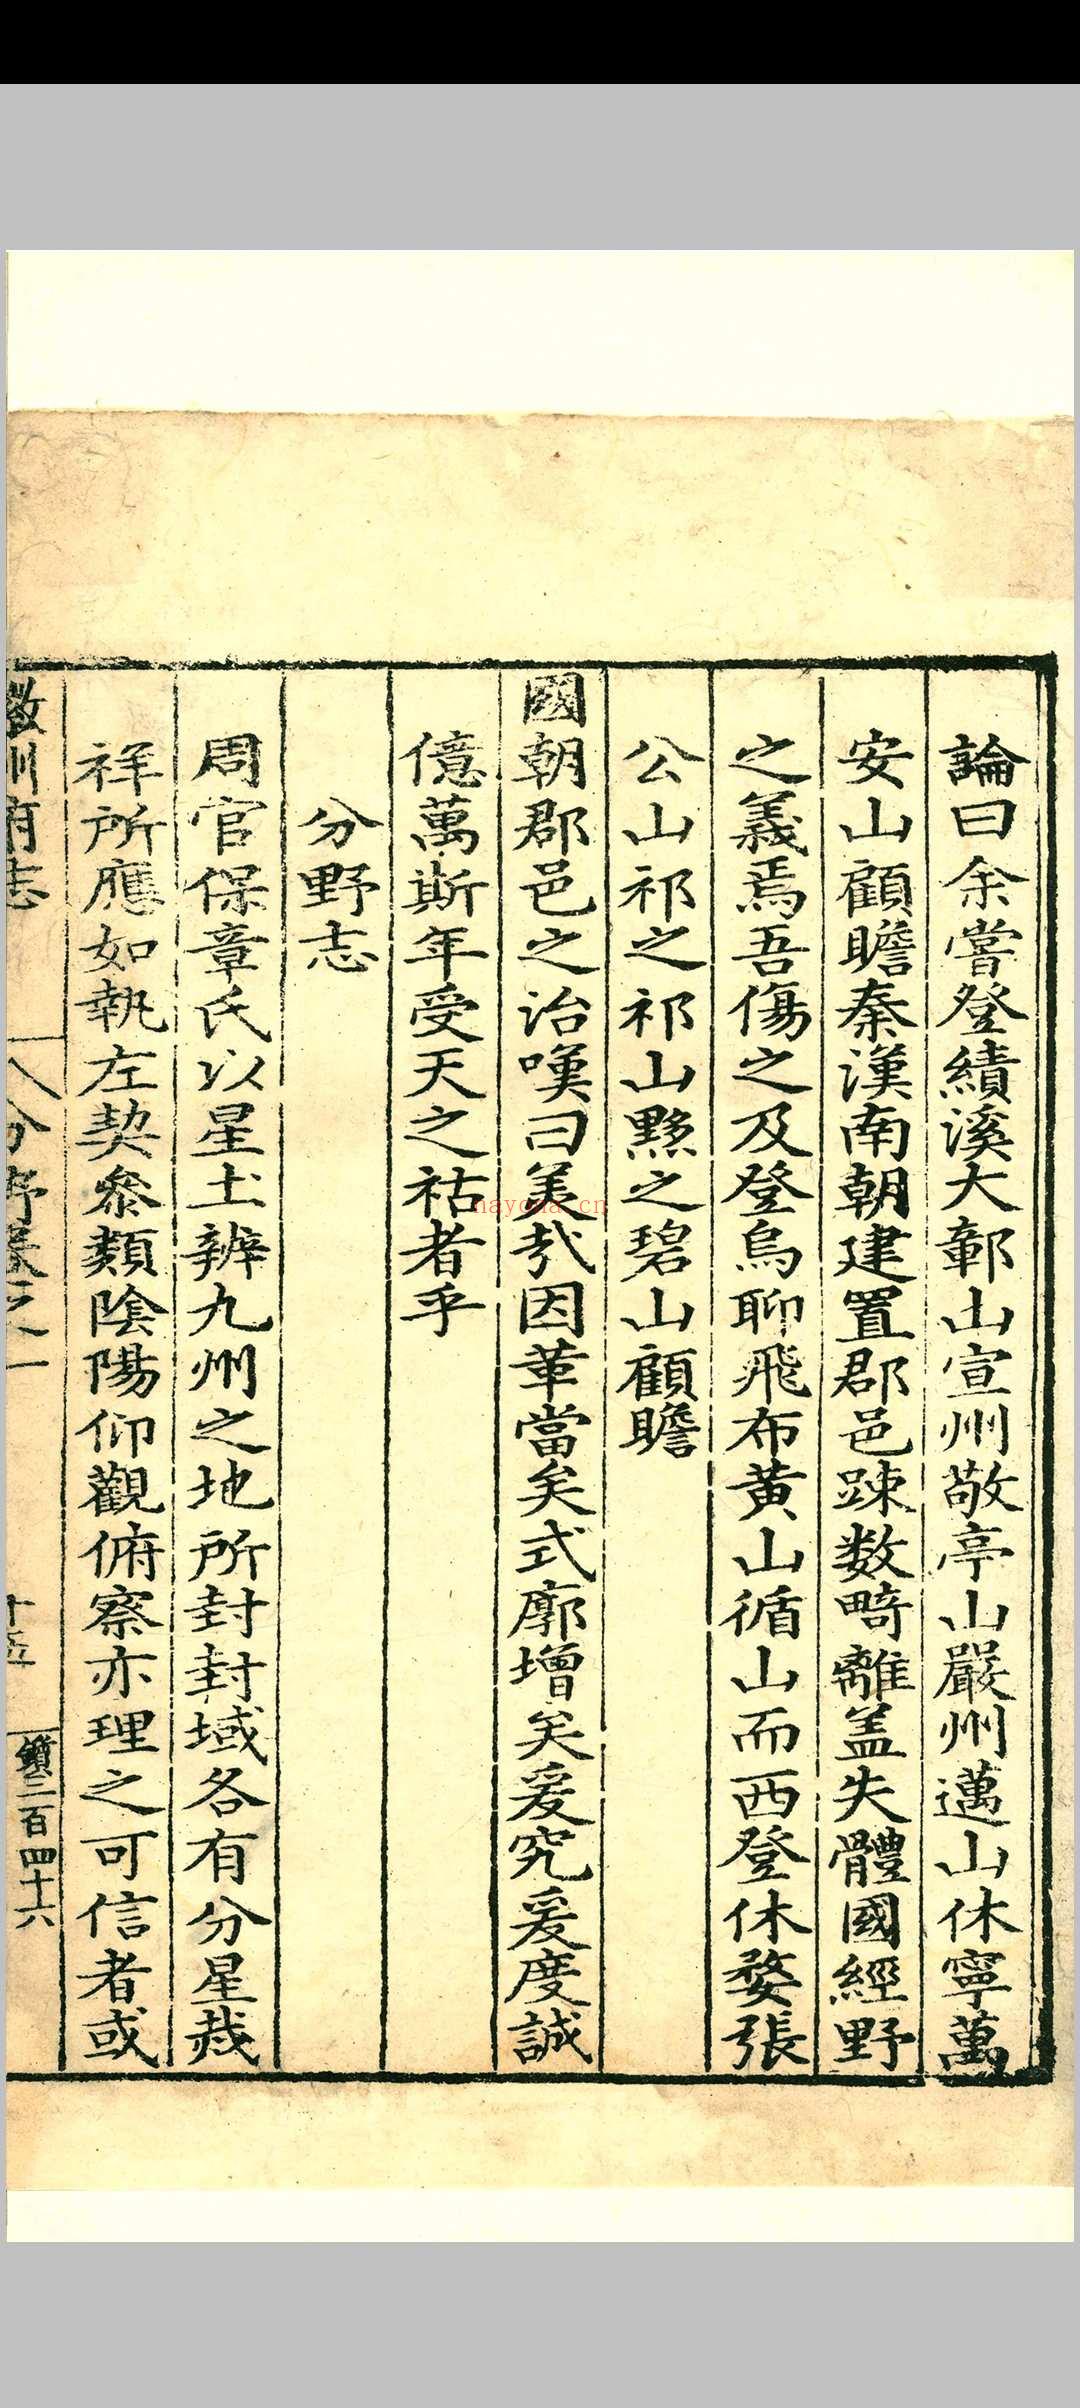 論曰余嘗登績溪大鄣山宣州敬亭山嚴州邁山休寧萬
安山顧瞻秦漢南朝建置郡邑踈数畸離盖失體國經野
之義焉吾傷之及登烏聊飛布黄山循山而西登休婺張
公山祁之祁山黟之碧山顧瞻
國朝郡邑之治嘆曰美哉因革當矣式廓增矣爰究爰度誠
億萬斯年受天之祜者乎
分野志
周官保章氏以星土辨九州之地所封封域各有分星裁
祥所應如執左契叅類陰陽仰觀俯察亦理之可信者或
徽州府志
分野卷之一
十五
鎮三百四十六
nayona.cn